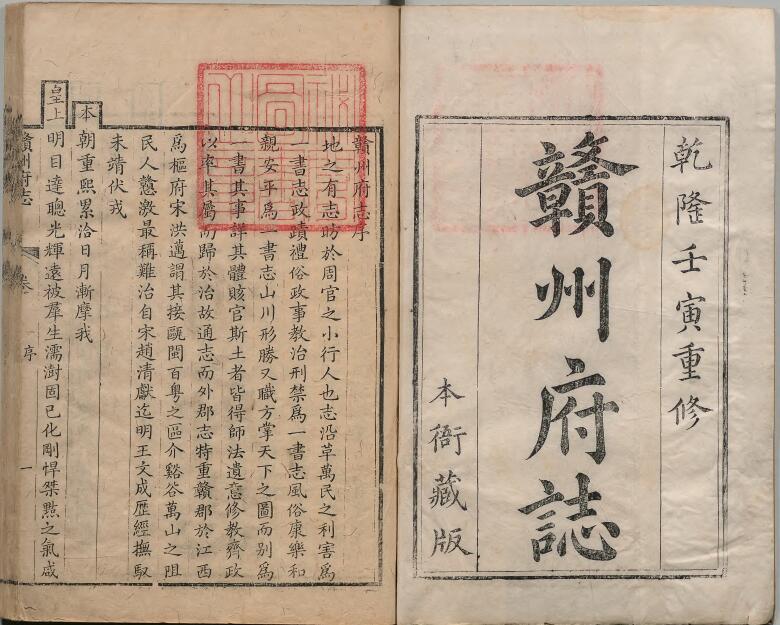 乾隆壬寅重修
贛州府誌
本衙藏版
贛州府志序
地之有志昉於周官之小行人也志沿革萬民之利害爲
一書志政蹟禮俗政事教治刑禁爲一書志風俗康樂和
親安平爲一書志山川形勝又職方掌天下之圖而别爲
一書其事詳其體賅官斯土者皆得師法遺意修教齊政
以率其屬而歸於治故通志而外郡志特重贛郡於江西
爲樞府宋洪邁謂其接甌閩百粤之區介谿谷萬山之阻
民人戇激最稱難治自宋趙清獻迄明王文成歷經撫馭
未靖伏戎
本朝重熙累洽日月漸摩我
皇上明目達聰光輝遠被羣生濡澍固已化剛悍桀黠之氣咸
贛州府志
序
一